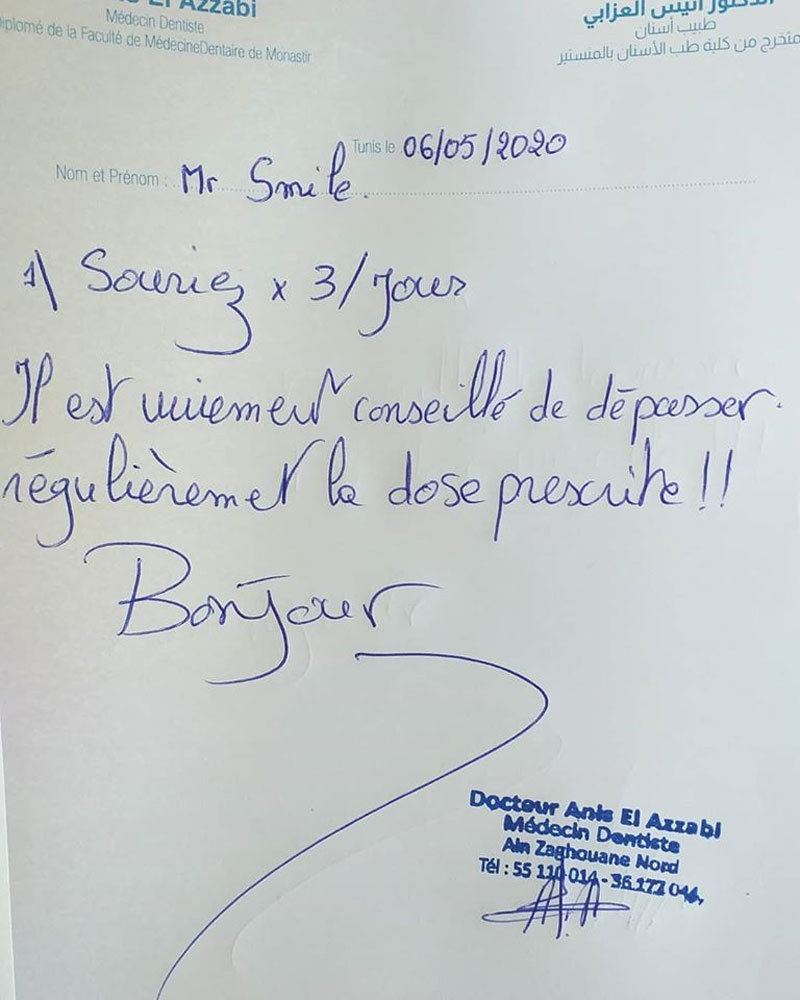 El Azzabi
Médecin Dentiste
iplomé de la Faculté de MédecineDentaire de Monastir
الدكتور أنيس العزابي
طبيب أسنان
متخرج من كلية طب الأسنان بالمنستير
Tunis le 06/05/2020
Nom et Prénom : Mr Smile.
1\ Souriez x 3/Jour
Il est vivement conseillé de dépasser
régulièremet la dose prescrite !!
Bonjour
Docteur Anis El Azzabi
Médecin Dentiste
Ain Zaghouane Nord
Tél : 55 110 014 - 36 177 044